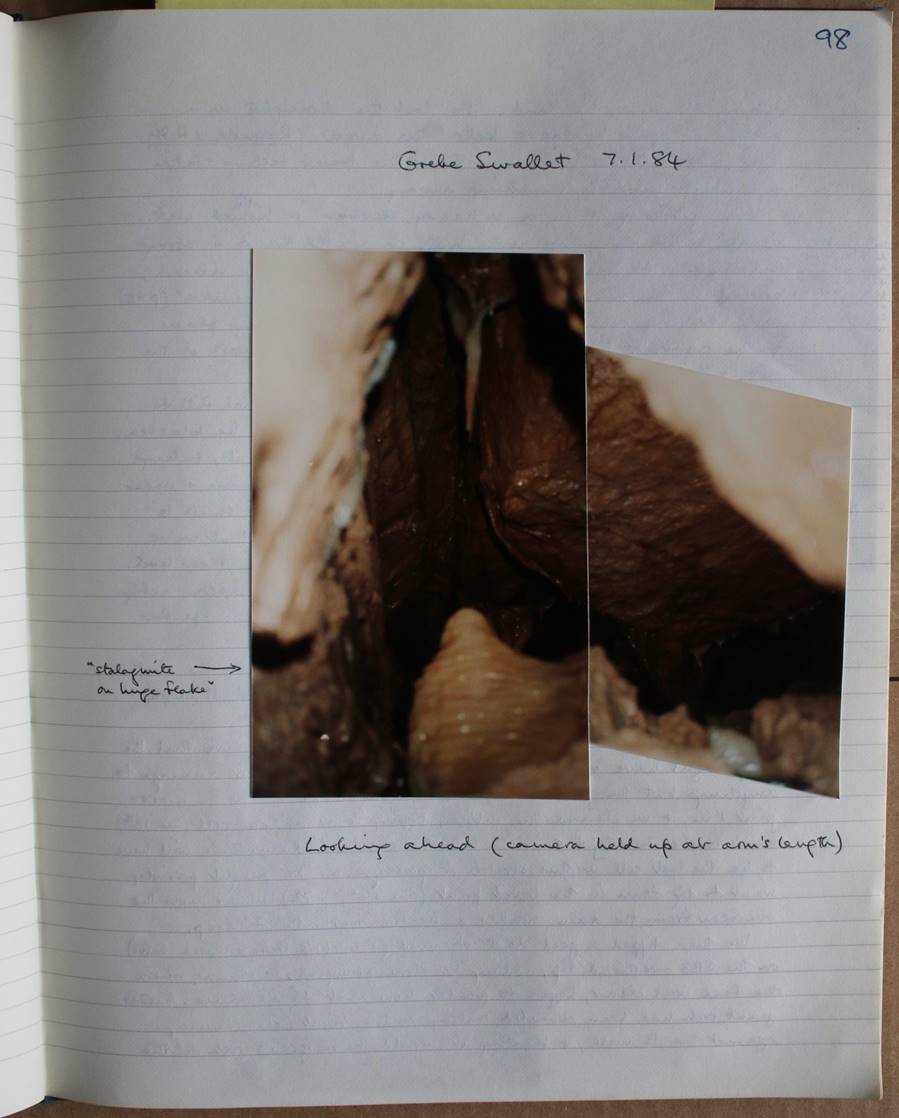 98
Grebe Swallet 7.1.84
"stalagmite
on huge flake"
Looking ahead (camera held up at arm's length)